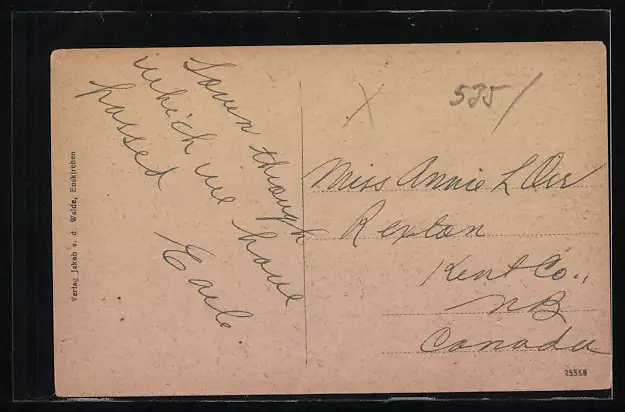 Town through
which we have
passed
Earle
Verlag Jakob v. d. Walde, Euskirchen
X
535/
Miss Annie L Orr
Rexton
Kent Co.,
NB
Canada
25558